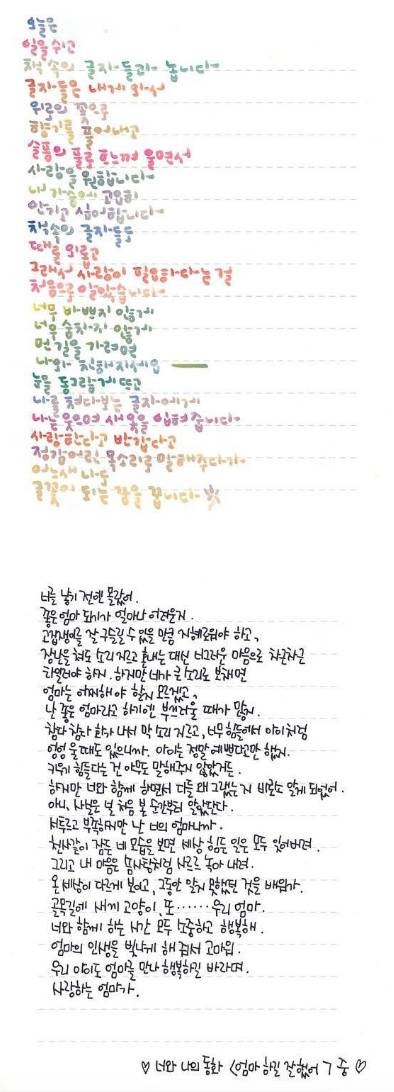 오늘은
일을 쉬고
책 속의 글자들과 놉니다
글자들은 내게 와서
위로의 꽃으로
향기를 풀어내고
슬픔의 풀로 흐느껴 울면서
사랑을 원합니다
내 가슴에 고요히
안기고 싶어합니다
책 속의 글자들도
때론 외롭고
그래서 사랑이 필요하다는 걸
처음으로 알았습니다
너무 바쁘지 않게
너무 숨차지 않게
먼 길을 가려면
나와 친해지세요
눈을 동그랗게 뜨고
나를 쳐다보는 글자에게
나는 웃으며 새 옷을 입혀줍니다
사랑한다고 반갑다고
정감어린 목소리로 말해주다가
어느새 나도
글꽃이 되는 꿈을 꿉니다
너를 낳기 전엔 몰랐어.
좋은 엄마 되기가 얼마나 어려운지.
고집쟁이를 잘 구슬릴 수 있을 만큼 지혜로워야 하고,
장난을 쳐도 소리 지르고 혼내는 대신 너그러운 마음으로 차근차근
타일러야 하지. 하지만 네가 큰 소리로 보채면
엄마는 어찌해야 할지 모르겠고,
난 좋은 엄마라고 하기엔 부끄러울 때가 많지.
참다 참다 화가 나서 막 소리 지르고, 너무 힘들어서 아이처럼
엉엉 울 때도 있으니까. 아이는 정말 예쁘다고만 했지.
키우기 힘들다는 건 아무도 말해주지 않았거든.
하지만 너와 함께 하면서 다들 왜 그랬는지 비로소 알게 되었어.
아니, 사실은 널 처음 본 순간부터 알았단다.
서투르고 부족하지만 난 너의 엄마니까.
천사같이 잠든 네 모습을 보면 세상 힘든 일은 모두 잊어버려.
그리고 내 마음은 솜사탕처럼 사르르 녹아 내려.
온 세상이 다르게 보이고, 그동안 알지 못했던 것을 배워가.
골목길에 새끼 고양이, 또...... 우리 엄마.
너와 함께 하는 시간 모두 소중하고 행복해.
엄마의 인생을 빛나게 해 줘서 고마워.
우리 아이도 엄마를 만나 행복하길 바라며.
사랑하는 엄마가.
♡ 너와 나의 동화 <엄마 하길 잘했어> 중 ♡